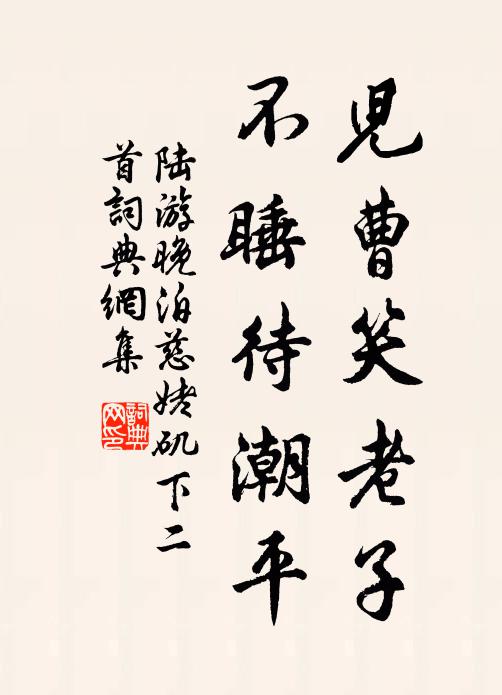 児曹笑老子
不睡待潮平
陆游晚泊慈姥矶下二
首詞典網集
詞典网印